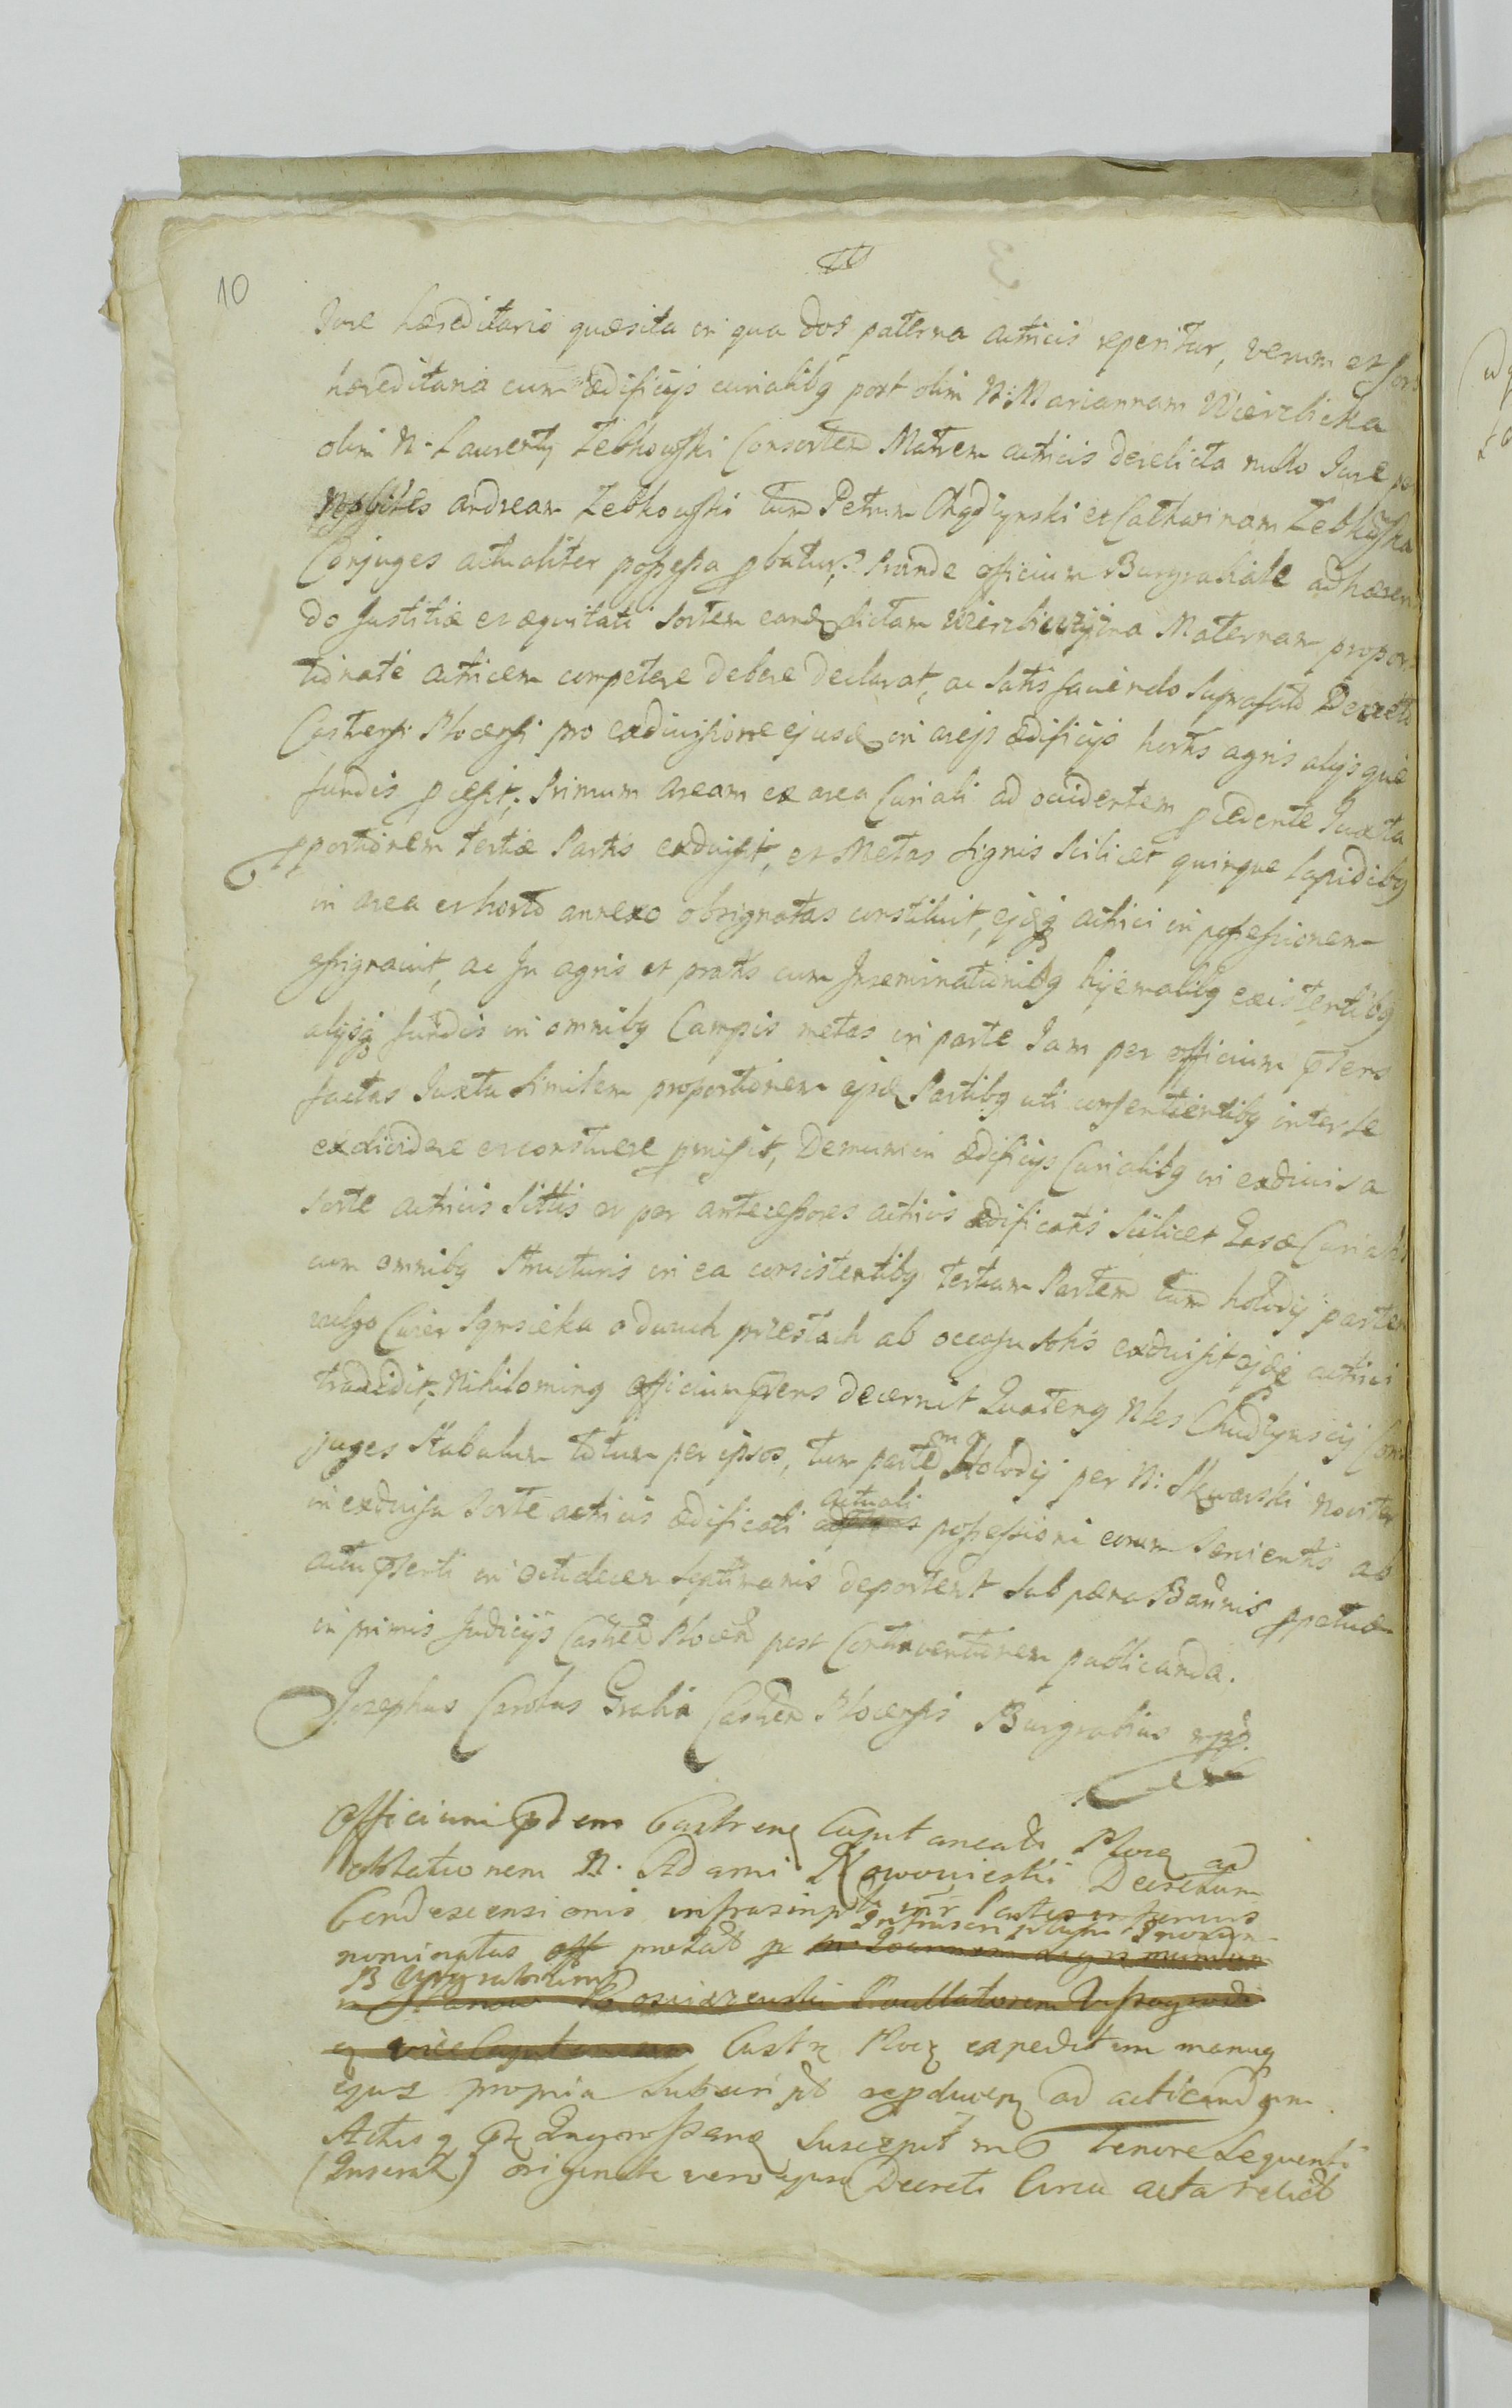 10
Jure hæreditario quæsita in qua dos paterna actricis reperitur, verum et sors
hæreditaria cum ædificijs curialibq post olim N: Mariannam Wierzbicka
olim N. Laurentij Zebkowski Consortem Matrem actricis derelicta nullo Jure per
Nobiles Andream Zebkowski tum Petrum et Catharinam Zebkowska
Conjuges actualiter possessa pbatur, Proinde officium Burgrabiale adhæren
do Justitiæ et æquitati sortem eandem dictam Maternam propor
tionate actricem competere debere declarat, ac satis faciendo suprafato Decreto
Castrensi Plocensi pro exdivisione ejusd in areis ædificijs hortis agris alijsque
fundis pcessit. Primum aream ex area Curiali ad occidentem pcedente Juxta
pportionem tertiæ Partis exdivisit, et Metas signis scilicet quinque lapidibq
in area et horto annexo obsignatas constituit, actrici in possessionem
assignavit, ac In agris et pratis cum Inseminationibq hyemalibq existentibq
alijsq fundis in omnibq Campis metas in parte Jam per officium pns
factas Juxta similem proportionem Partibq uti consentientibq inter se
exdividere et pmisit, Demum in ædificijs Curialibq in exdivisa
sorte actricis sittis et per antecessores actricis ædificatis scilicet Casæ Curialis
cum omnibq structuris in ea consistentibq tertiam Partem tum holodij partem
vulgo o dwuch przestach ab occasu solis exdivisit actrici
tradidit, Nihilominq officium pns decernit Quatenq Nles Chudzynscij Con
juges stabulum totum per ipsos, tum partem Holodij per N: Skwarski noviter
in exdivisa sorte actricis ædificati actuali possessioni eorum servientis ab
actu pnti in octidecem septimanis deportent sub pæna Bannis ppetuæ
in primis Judicijs Castren Plocen post Contraventionem publicanda.
Josephus Carolus Grabia Castren Plocensis Burgrabius mpp.
Officium Castrenq Capitaneale Plocq ad
oblationem N. Adami Nowowieski Decretum
Condescensionis infrascript inr Partes in
nominatas off p
Burgrabium
Castrq Plocq expeditum manuq
ejus propria subscript ad acticandum
Actisq suscepit in tenore sequenti
(Inserat) originale vero Decreti Circa acta relict